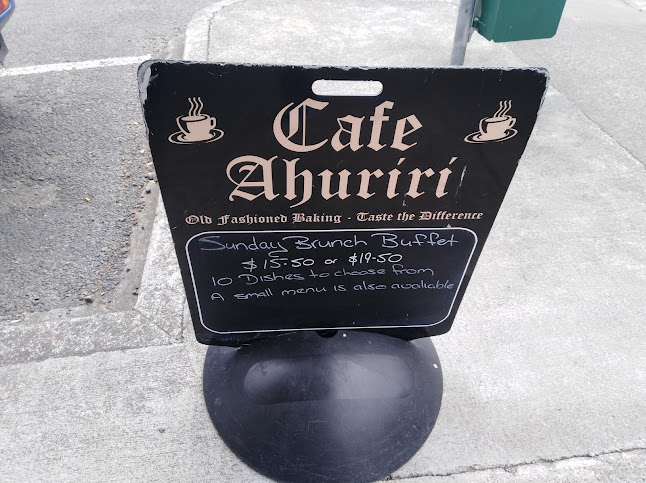 Cafe
Ahuriri
Old Fashioned Baking - Taste the Difference
Sunday Brunch Buffet
$15-50 or $19-50
10 Dishes to choose from
A small menu is also available